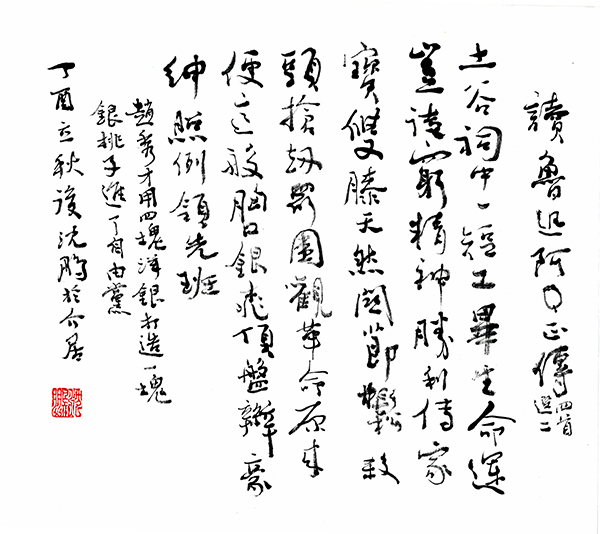 讀魯迅阿Q正傳 四首選二
土谷祠中一短工畢生命運
豈窮精神勝利傳家
寶雙膝天然關節鬆 殺
頭搶劫眾圍觀革命原來
便這般胸口銀桃頂盤辮豪
紳照例領先班
趙秀才用四塊洋銀打造一塊
銀桃子進了自由黨
丁酉立秋後沈鵬於介居